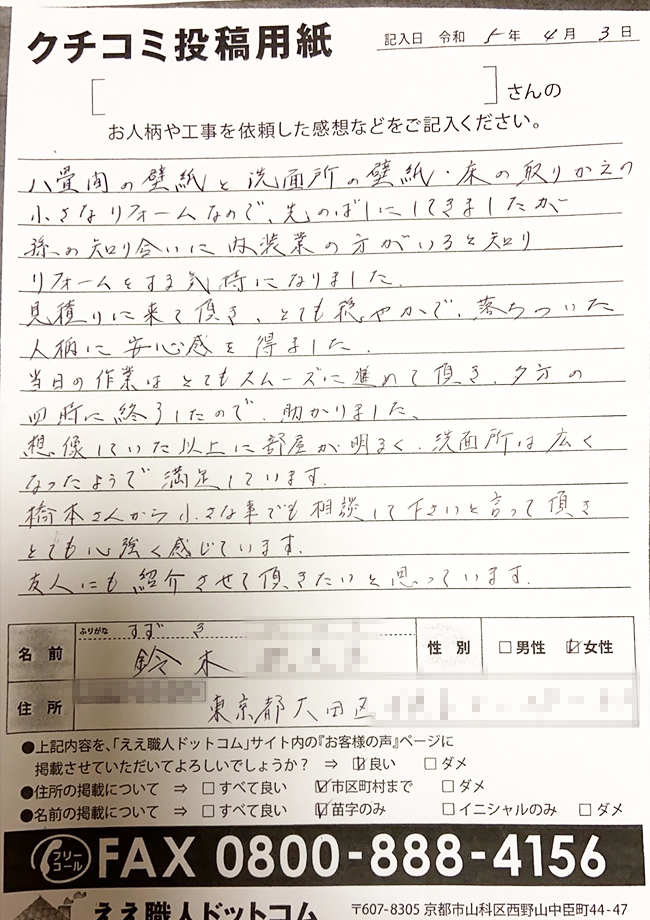 クチコミ投稿用紙
記入日 令和 5年 4月 3日
[ ]さんの
お人柄や工事を依頼した感想などをご記入ください。
八畳間の壁紙と洗面所の壁紙・床の取りかえの
小さなリフォームなので、先のばしにしてきましたが
孫の知り合いに内装業の方がいると知り
リフォームをする気持になりました。
見積りに来て頂き、とても穏やかで、落ちついた
人柄に安心感を得ました。
当日の作業はとてもスムーズに進めて頂き、夕方の
四時に終了したので、助かりました。
想像していた以上に部屋が明るく、洗面所は広く
なったようで満足しています。
橋本さんから小さな事でも相談して下さいと言って頂き
とても心強く感じています。
友人にも紹介させて頂きたいと思っています。
ふりがな すずき
名前 鈴木 性別 □男性 ☑女性
住所 東京都大田区
●上記内容を、「ええ職人ドットコム」サイト内の『お客様の声』ページに
掲載させていただいてよろしいでしょうか? ⇒ ☑良い □ダメ
●住所の掲載について ⇒ □すべて良い ☑市区町村まで □ダメ
●名前の掲載について ⇒ □すべて良い ☑苗字のみ □イニシャルのみ □ダメ
フリーコール FAX 0800-888-4156
ええ職人ドットコム 〒607-8305 京都市山科区西野山中臣町44-47